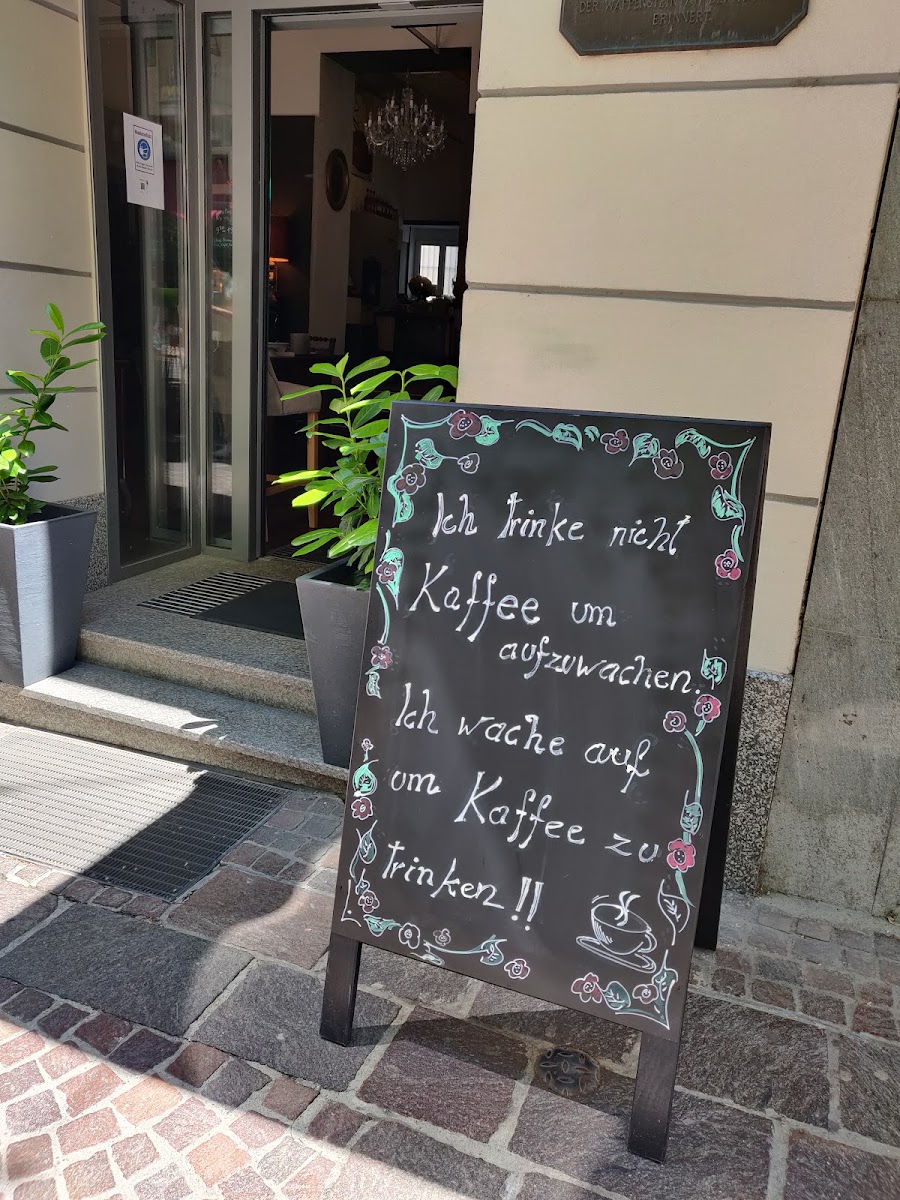 DER WAFFENSTEIN
ERINNERT
Ich trinke nicht
Kaffee um
aufzuwachen.
Ich wache auf
um Kaffee zu
trinken!!